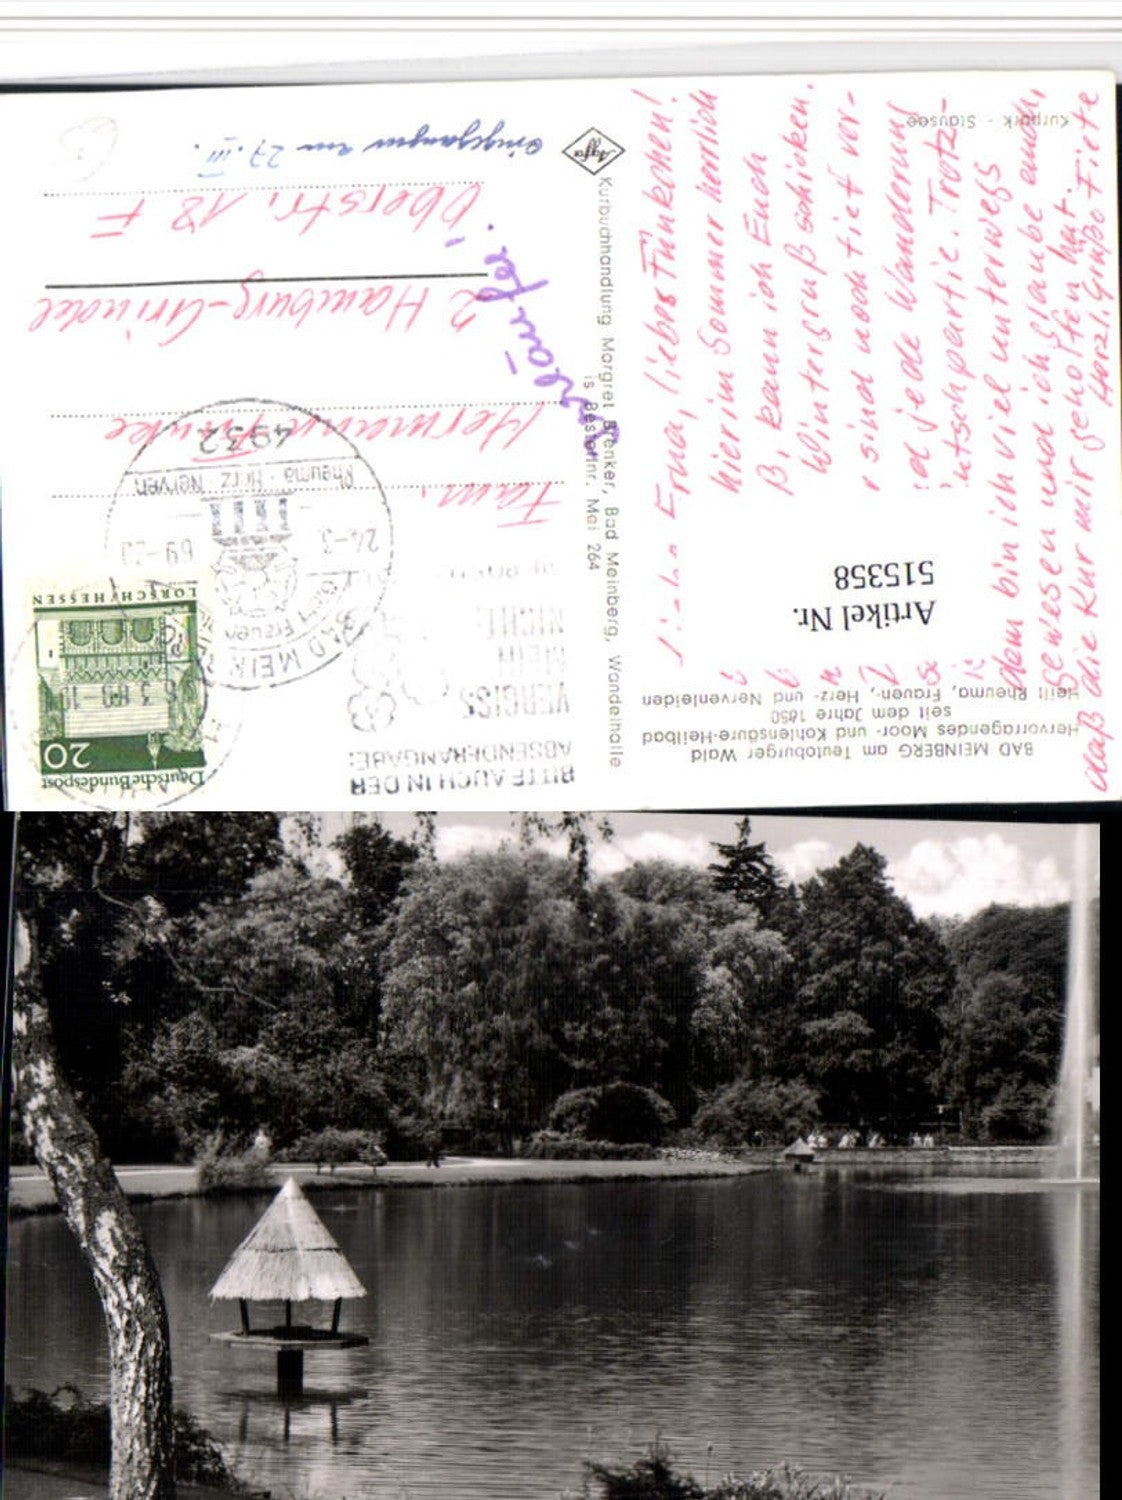 Kurpark - Stausee
Liebe Erna, liebes Fünkchen!
hier im Sommer herrlich
ß, kann ich Euch
Wintergruß schicken.
r sind noch tief ver-
jede Wanderung
utschpartie. Trotz-
dem bin ich viel unterwegs
gewesen und ich glaube auch,
daß die Kur mir geholfen hat.
Herzl. Grüße Fiete
Artikel Nr.
515358
BAD MEINBERG am Teutoburger Wald
Hervorragendes Moor- und Kohlensäure-Heilbad
seit dem Jahre 1850
Heilt Rheuma, Frauen-, Herz- und Nervenleiden
Kurbuchhandlung Margret Brenker, Bad Meinberg, Wandelhalle
is Bestellnr. Mei 264
Agfa
BITTE AUCH IN DER
ABSENDERANGABE:
VERGISS
MEIN
NICHT
4932
BAD MEINBERG
Rheuma · Herz
Nerven
Frauen
24-3.
69-20
Deutsche Bundespost
20
LORSCH/HESSEN
Fam.
Hermann Funke
2 Hamburg-Grindel
Oberstr. 18 F
eingegangen am 27. III.